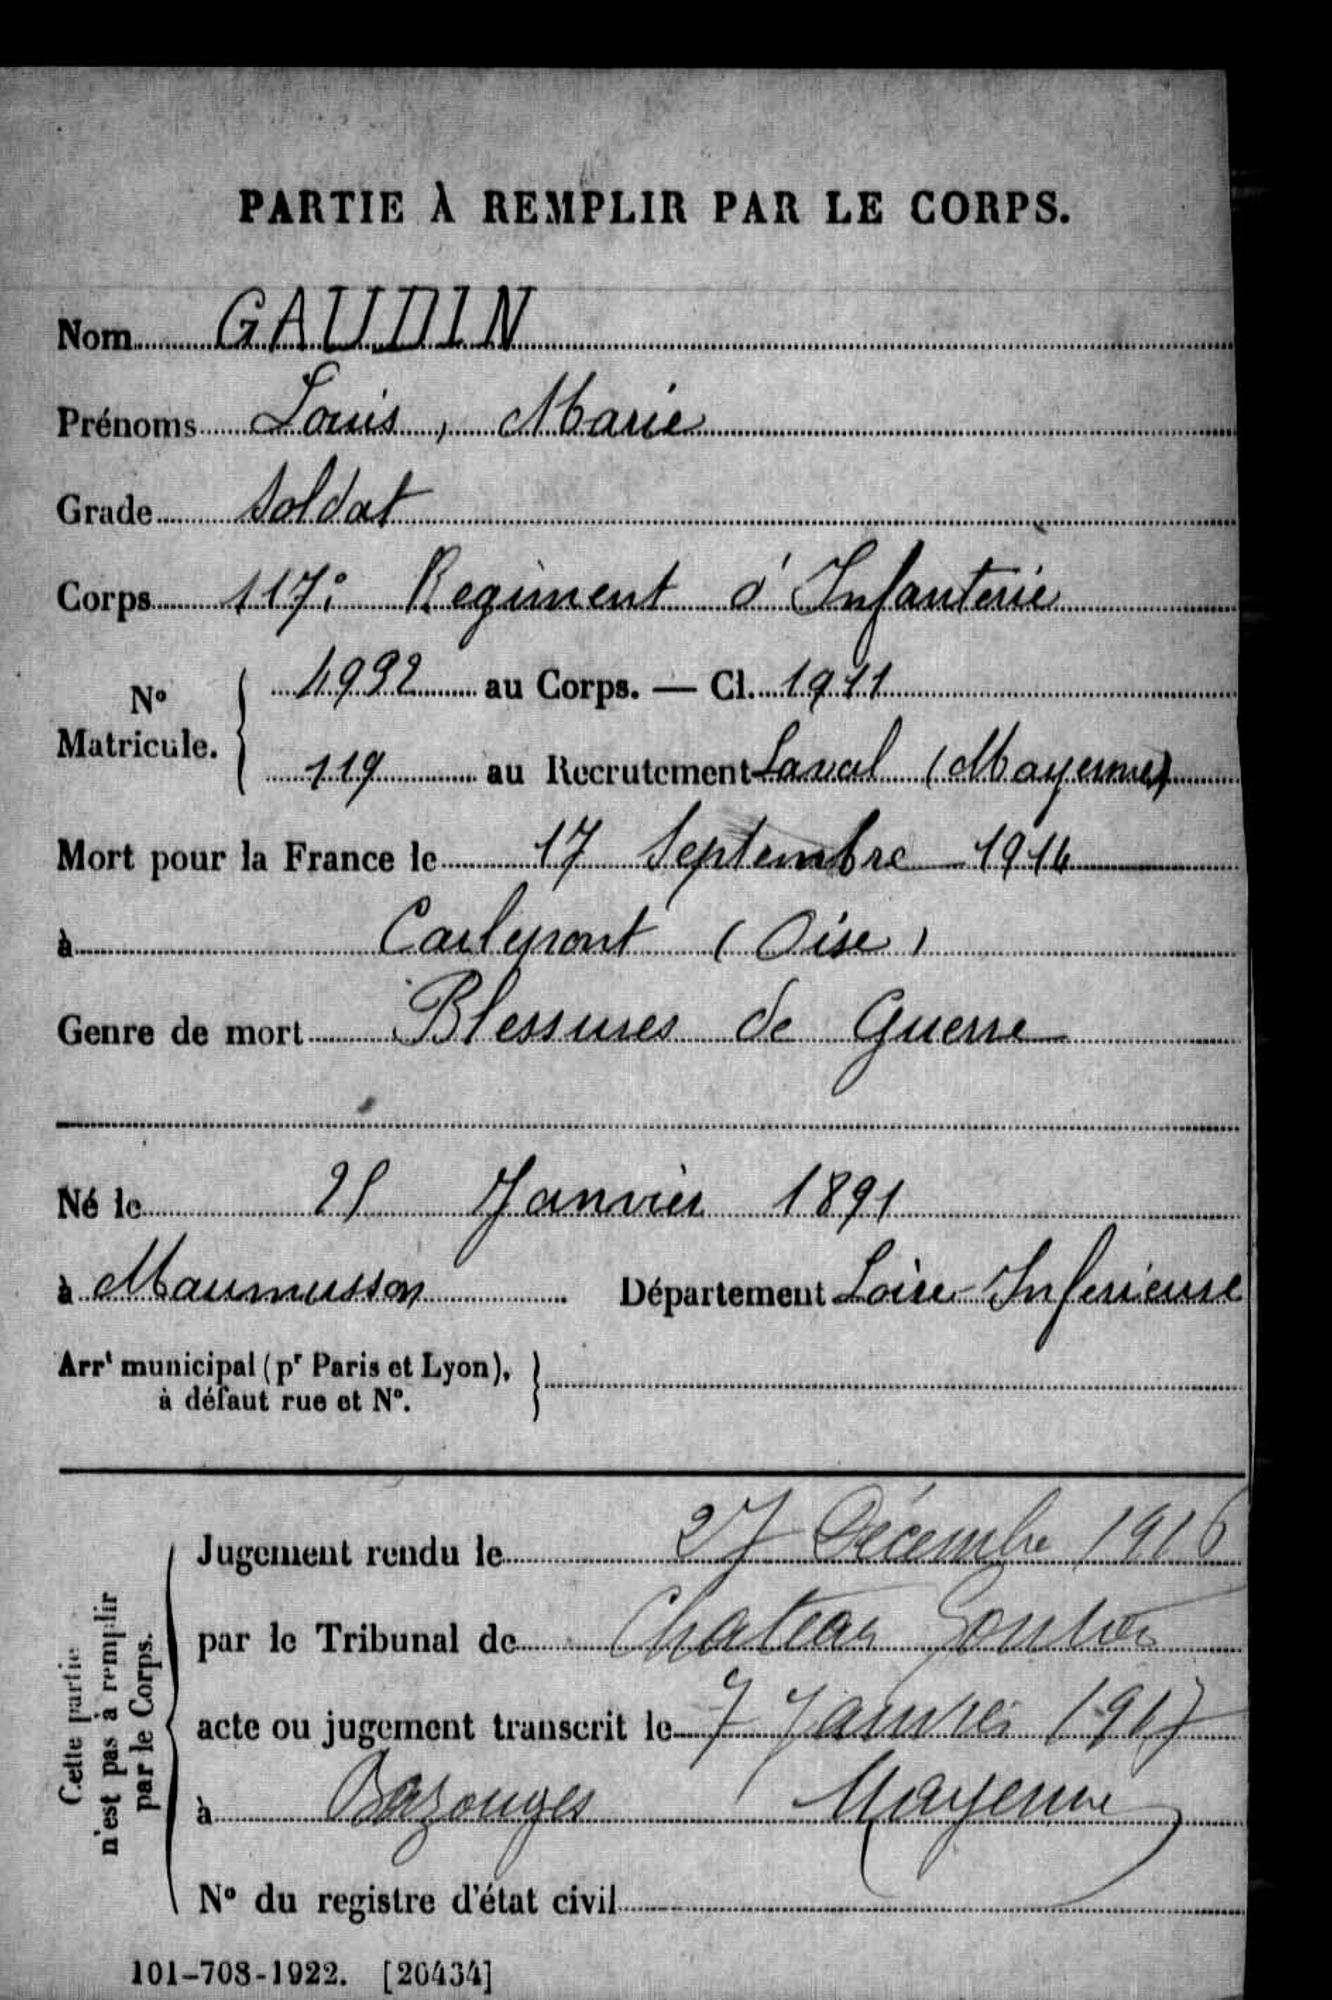 PARTIE À REMPLIR PAR LE CORPS.
Nom GAUDIN
Prénoms Louis, Marie
Grade soldat
Corps 117e Regiment d'Infanterie
N° Matricule. { 4992 au Corps. — Cl. 1911
119 au Recrutement Laval (Mayenne)
Mort pour la France le 17 Septembre 1914
à Carlepont (Oise)
Genre de mort Blessures de Guerre
Né le 25 Janvier 1891
à Maumusson Département Loire-Inferieure
Arrt municipal (pr Paris et Lyon), }
à défaut rue et N°.
Cette partie n'est pas à remplir par le Corps.
Jugement rendu le 27 Décembre 1916
par le Tribunal de Chateau Gontier
acte ou jugement transcrit le 7 Janvier 1917
à Bazouges Mayenne
N° du registre d'état civil
101-708-1922. [20434]